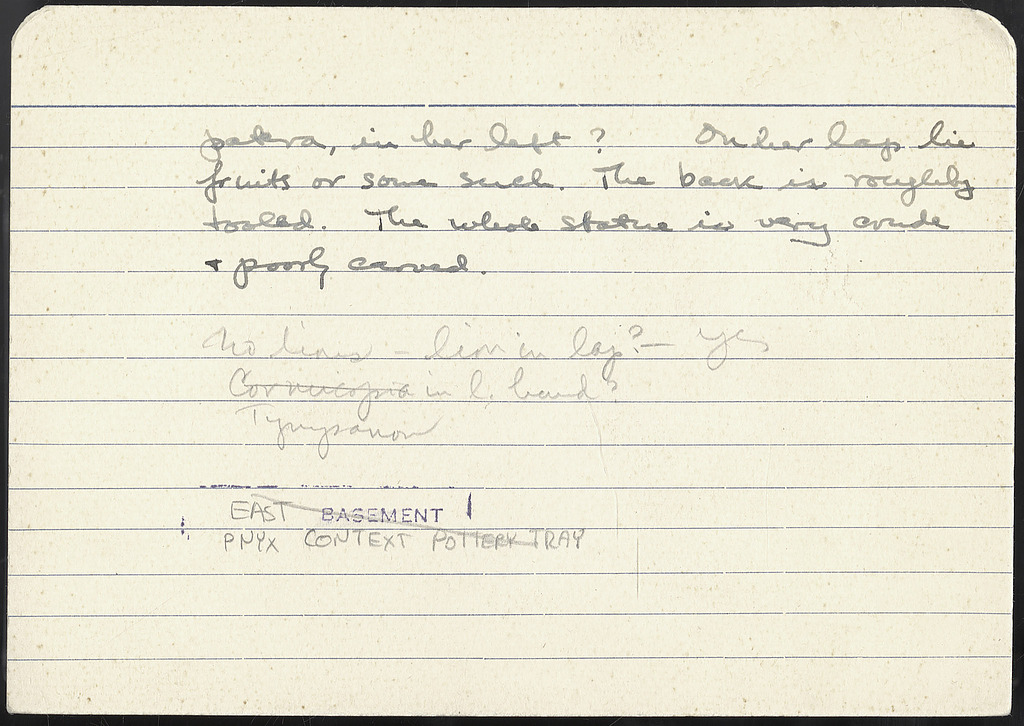 patera, in her left? On her lap lie
fruits or some such. The back is roughly
tooled. The whole statue is very crude
+ poorly carved.
No lions – lion in lap? – Yes
Cornucopia in l. hand?
Tympanon
EAST BASEMENT
PNYX CONTEXT POTTERY TRAY